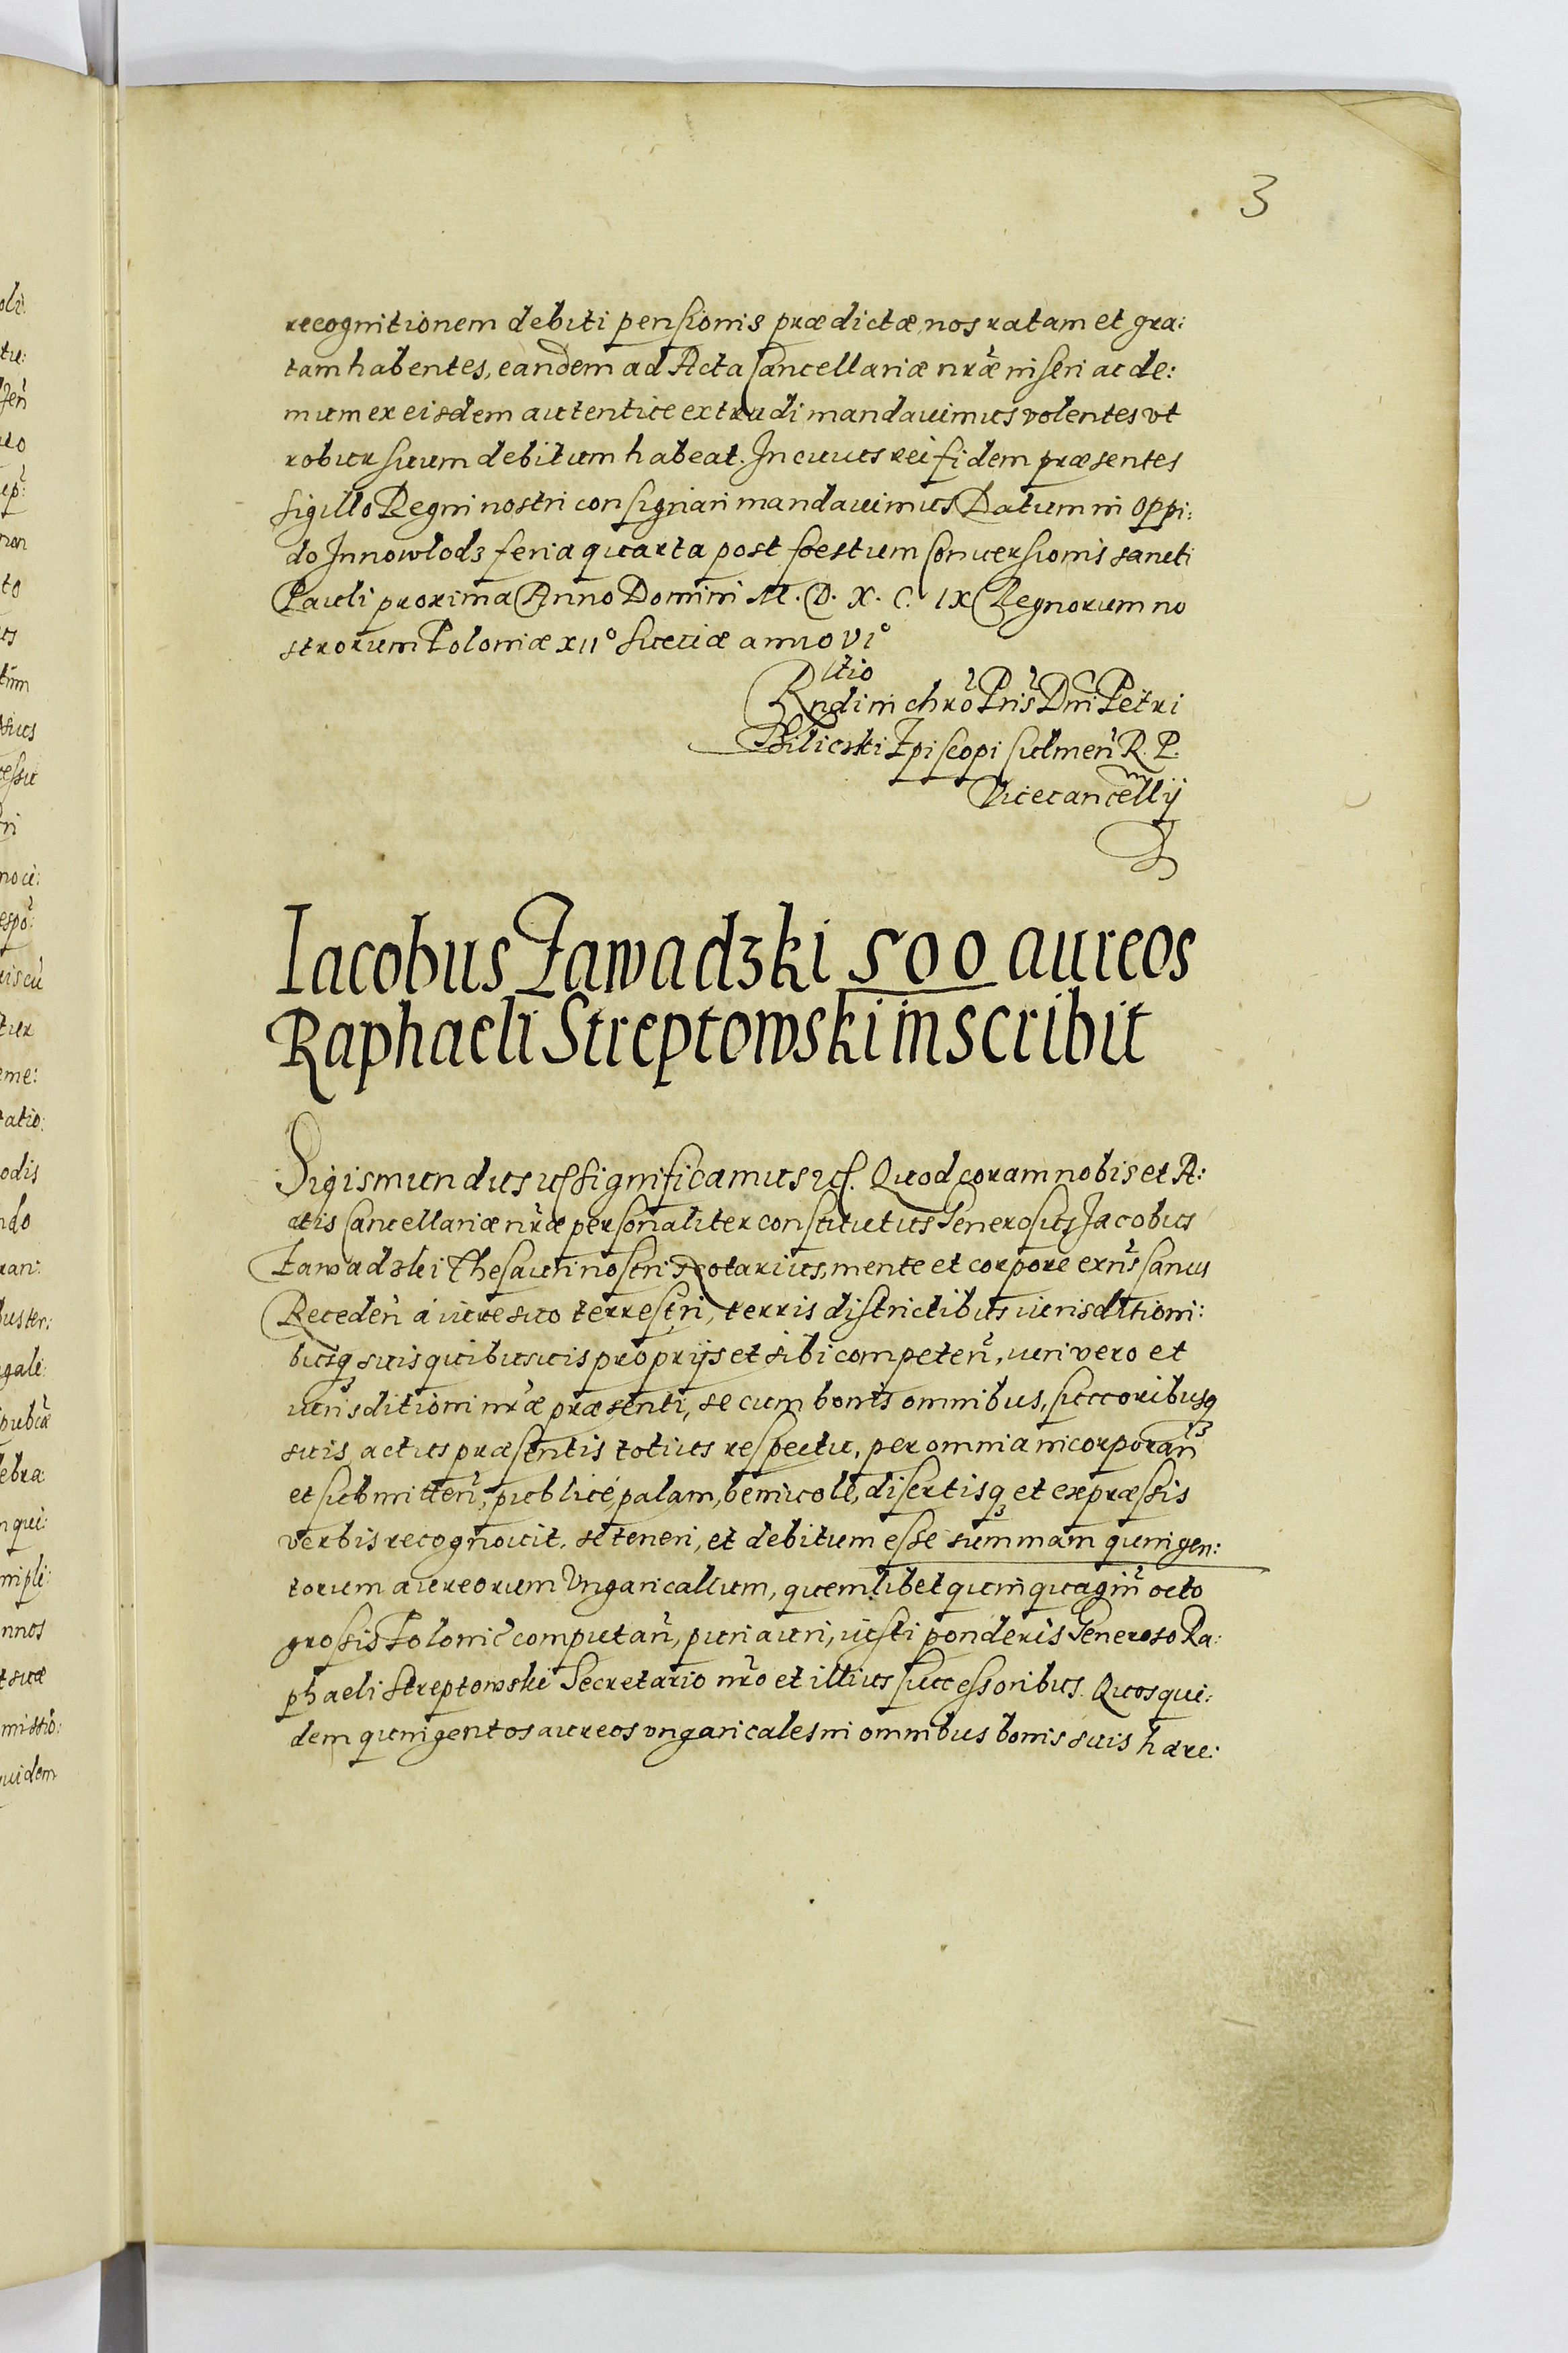 3
recognitionem debiti pensionis prædictæ, nos ratam et gra:
tam habentes, eandem ad Acta Cancellariæ nr̃æ inseri ac de:
mum ex eisdem autentice extradi mandauimus volentes vt
robur suum debitum habeat. In cuius rei fidem præsentes
sigillo Regni nostri consignari mandauimus Datum in oppi:
do Innowlodz feria quarta post foestum Conuersionis sancti
Pauli proxima Anno Domini M. D. X. C. IX Regnorum no
strorum Poloniæ XII° Sueciæ anno VI°
Rndi in chrõ Pris̃ Dni Petri
Tilicski Episcopi Culmeñ R. P.
Vicecancellij
Iacobus Zawadzki 500 aureos
Raphaeli Streptowski inscribit
Sigismundus etc significamus etc. Quod coram nobis et A:
ctis Cancellariæ nr̃æ personaliter constitutus Generosus Jacobus
Zawadzki Thesauri nostri Notarius, mente et corpore exñs sanus
Recedeñ a iure suo terrestri, terris districtibus iurisditioni:
busq suis quibusuis proprijs et sibi competeñ, iuri vero et
iurisditioni nr̃æ præsenti, se cum bonis omnibus, succoribusq
suis actus præsentis totius respectu, per omnia incorporañ
et submitteñ, publice, palam, beniuole, disertisq et expræssis
verbis recognouit, se teneri, et debitum esse summam quingen:
torum aureorum Vngaricalium, quemlibet quinquagiñ octo
grossis Polonic computañ, puri auri, iusti ponderis Generoso Ra:
phaeli Streptowski Secretario nr̃o et illius successoribus. Quosqui:
dem quingentos aureos vngaricales in omnibus bonis suis hære: